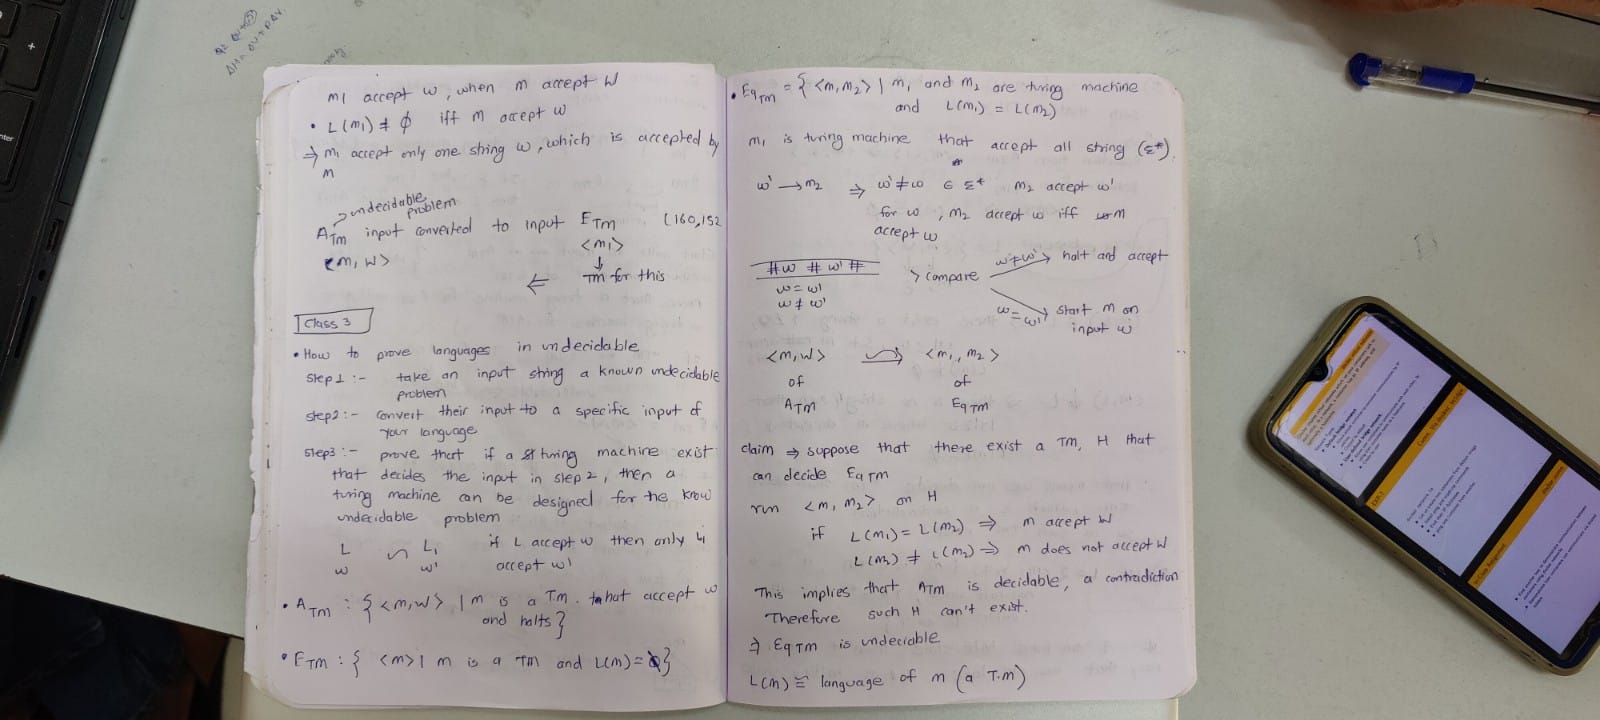 m1 accept w, when m accept W
• L(m1) ≠ ϕ iff M accept w
⇒ m1 accept only one string w, which is accepted by
m
→ undecidable
problem
ATM input converted to input ETM (160,152
<m, W> <m1>
↓
⇐ TM for this
Class 3
• How to prove languages in undecidable
Step1 :- take an input string a known undecidable
problem
step2 :- convert their input to a specific input of
your language
step3 :- prove that if a turing machine exist
that decides the input in step 2, then a
turing machine can be designed for the know
undecidable problem
L ∽ L1 if L accept w then only L1
w w' accept w'
• ATM : { <m,w> | m is a Tm. that accept w
and halts }
• ETM : { <m> | m is a TM and L(m) = ϕ }
• EqTM = { <m1, m2> | m1 and m2 are turing machine
and L(m1) = L(m2)
m1 is turing machine that accept all string (Σ*)
w' → m2 ⇒ w' ≠ w ∈ Σ* m2 accept w'
for w, m2 accept w iff m
accept w
#w # w' # > compare w≠w' → halt and accept
w = w'
w ≠ w'
w = w' → start m on
input w
<m, w> ⇒ <m1, m2>
of of
ATM EqTM
claim ⇒ suppose that there exist a TM, H that
can decide EqTM
run <m1, m2> on H
if L(m1) = L(m2) ⇒ m accept W
L(m1) ≠ L(m2) ⇒ m does not accept W
This implies that ATM is decidable, a contradiction
Therefore such H can't exist.
⇒ EqTM is undeciable
L(m) ≅ language of m (a T.m)